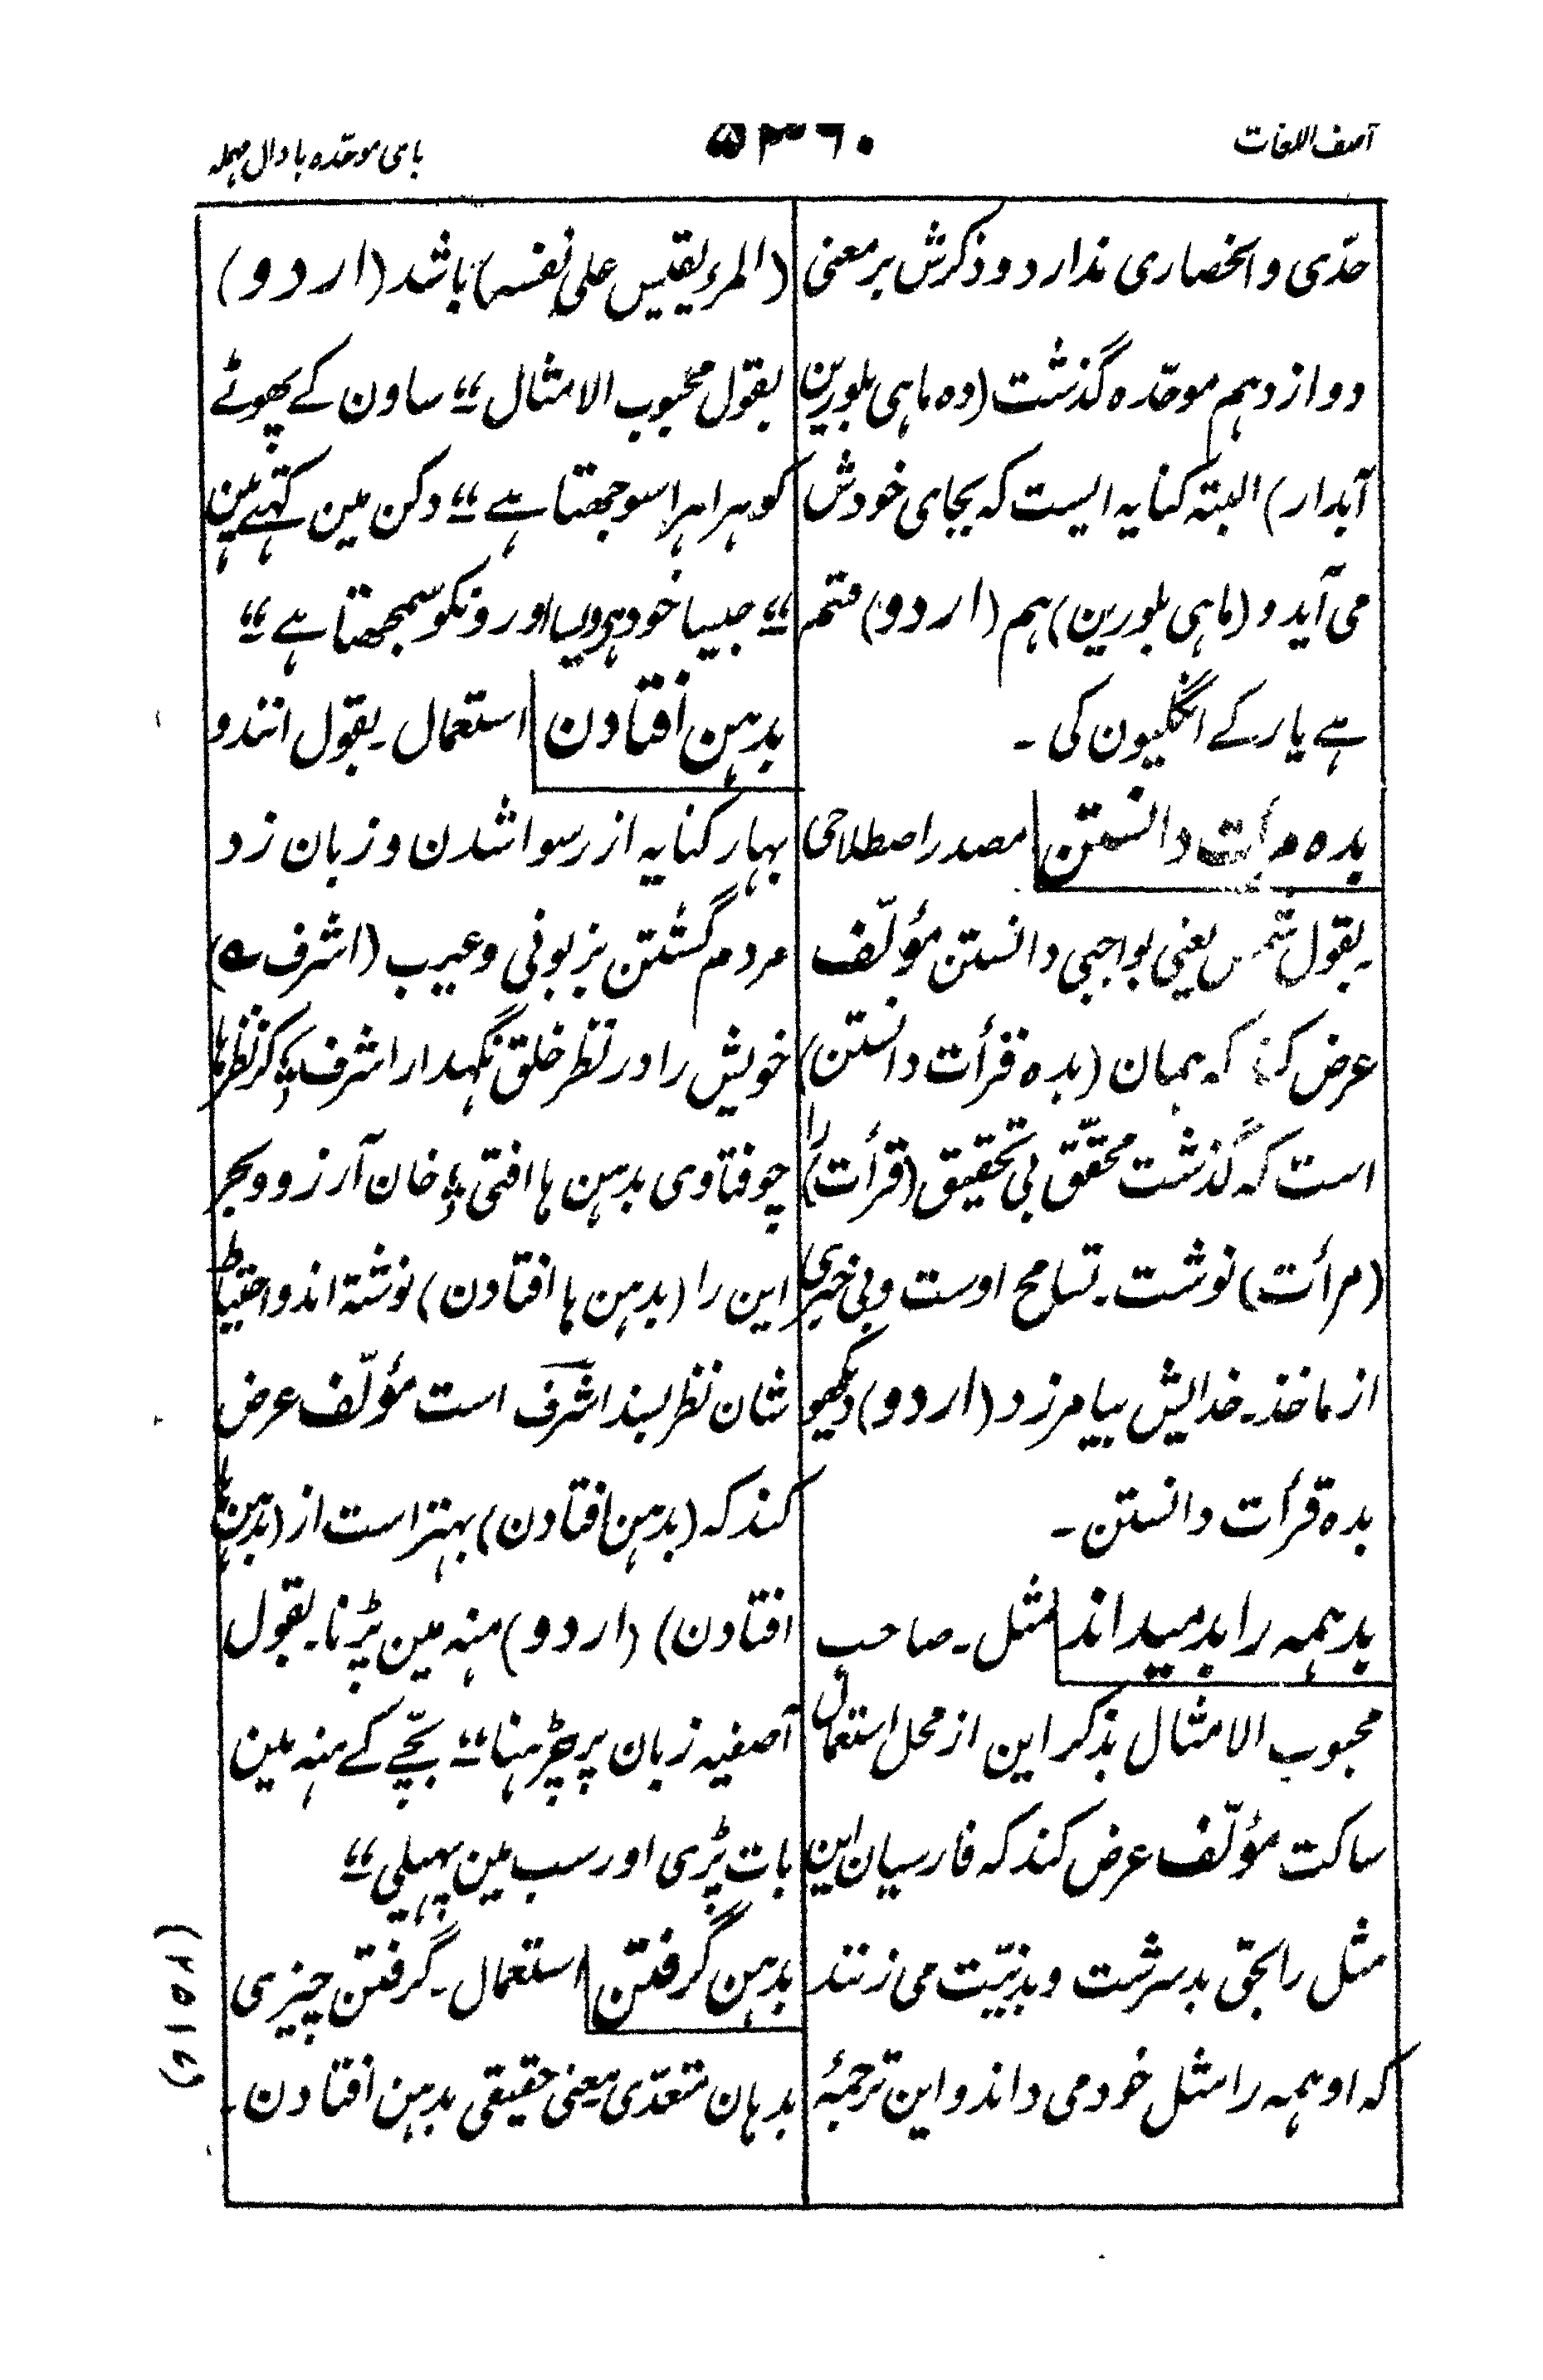 آصف اللغات
۵۳۶۰
بای موحّده با دال مهمله
حدّی و انحصاری ندارد و ذکرش بر معنی
دوازدہم موحّدہ گذشت (دہ ماہی بلورین
آبدار) البتہ کنایہ ایست کہ بجای خودش
می آید و (ماہی بلورین) ہم (اردو) متمہ
ہے یار کے انگلیون کی ۔
بدہ مرأت دانستن مصدر اصطلاحی
۔ بقول شمس یعنی بواجبی دانستن مؤلّف
عرض کند کہ ہمان (بدہ قرأت دانستن)
است کہ گذشت محقّق بی تحقیق (قرأت) را
(مرأت) نوشت ۔ تسامح اوست و بی خبری
از ماخذ ۔ خدایش بیامرزد (اردو) دیکھو
بدہ قرأت دانستن ۔
بد ہمہ را بد میداند مثل ۔ صاحب
محبوب الامثال بذکر این از محل استعمال
ساکت مؤلّف عرض کند کہ فارسیان این
مثل را بحق بدسرشت و بدنیّت می زنند
کہ او ہمہ را مثل خود می داند و این ترجمۂ
(المرء یقیس علی نفسہ) باشد (اردو)
بقول محبوب الامثال ؛؛ ساون کے پھوٹے
کو ہرا ہرا سوجھتا ہے ؛؛ دکن مین کہتے ہین
؛؛ جیسا خود ہے ویسا اورونکو سمجھتا ہے ؛؛
بدہن افتادن استعمال ۔ بقول انند و
بہار کنایہ از رسوا شدن و زبان زد
مردم گشتن بزبونی و عیب (اشرف ؎)
خویش را در نظر خلق نگہدار اشرف ؛ کز نظرہا
چو فتاوی بدہن ہا افتی ؛ خان آرزو و بحر
این را (بدہن ہا افتادن) نوشتہ اند و احتیاط
شان نظر بسند اشرف است مؤلّف عرض
کند کہ (بدہن افتادن) بہتر است از (بدہن ہا
افتادن) (اردو) منہ مین پڑنا ۔ بقول
آصفیہ زبان پر چڑہنا ؛؛ بچّے کے منہ مین
بات پڑی اور سب مین پہیلی ؛؛
بدہن گرفتن استعمال ۔ گرفتن چیزی
بدہان متعدّی معنی حقیقی بدہن افتادن ۔